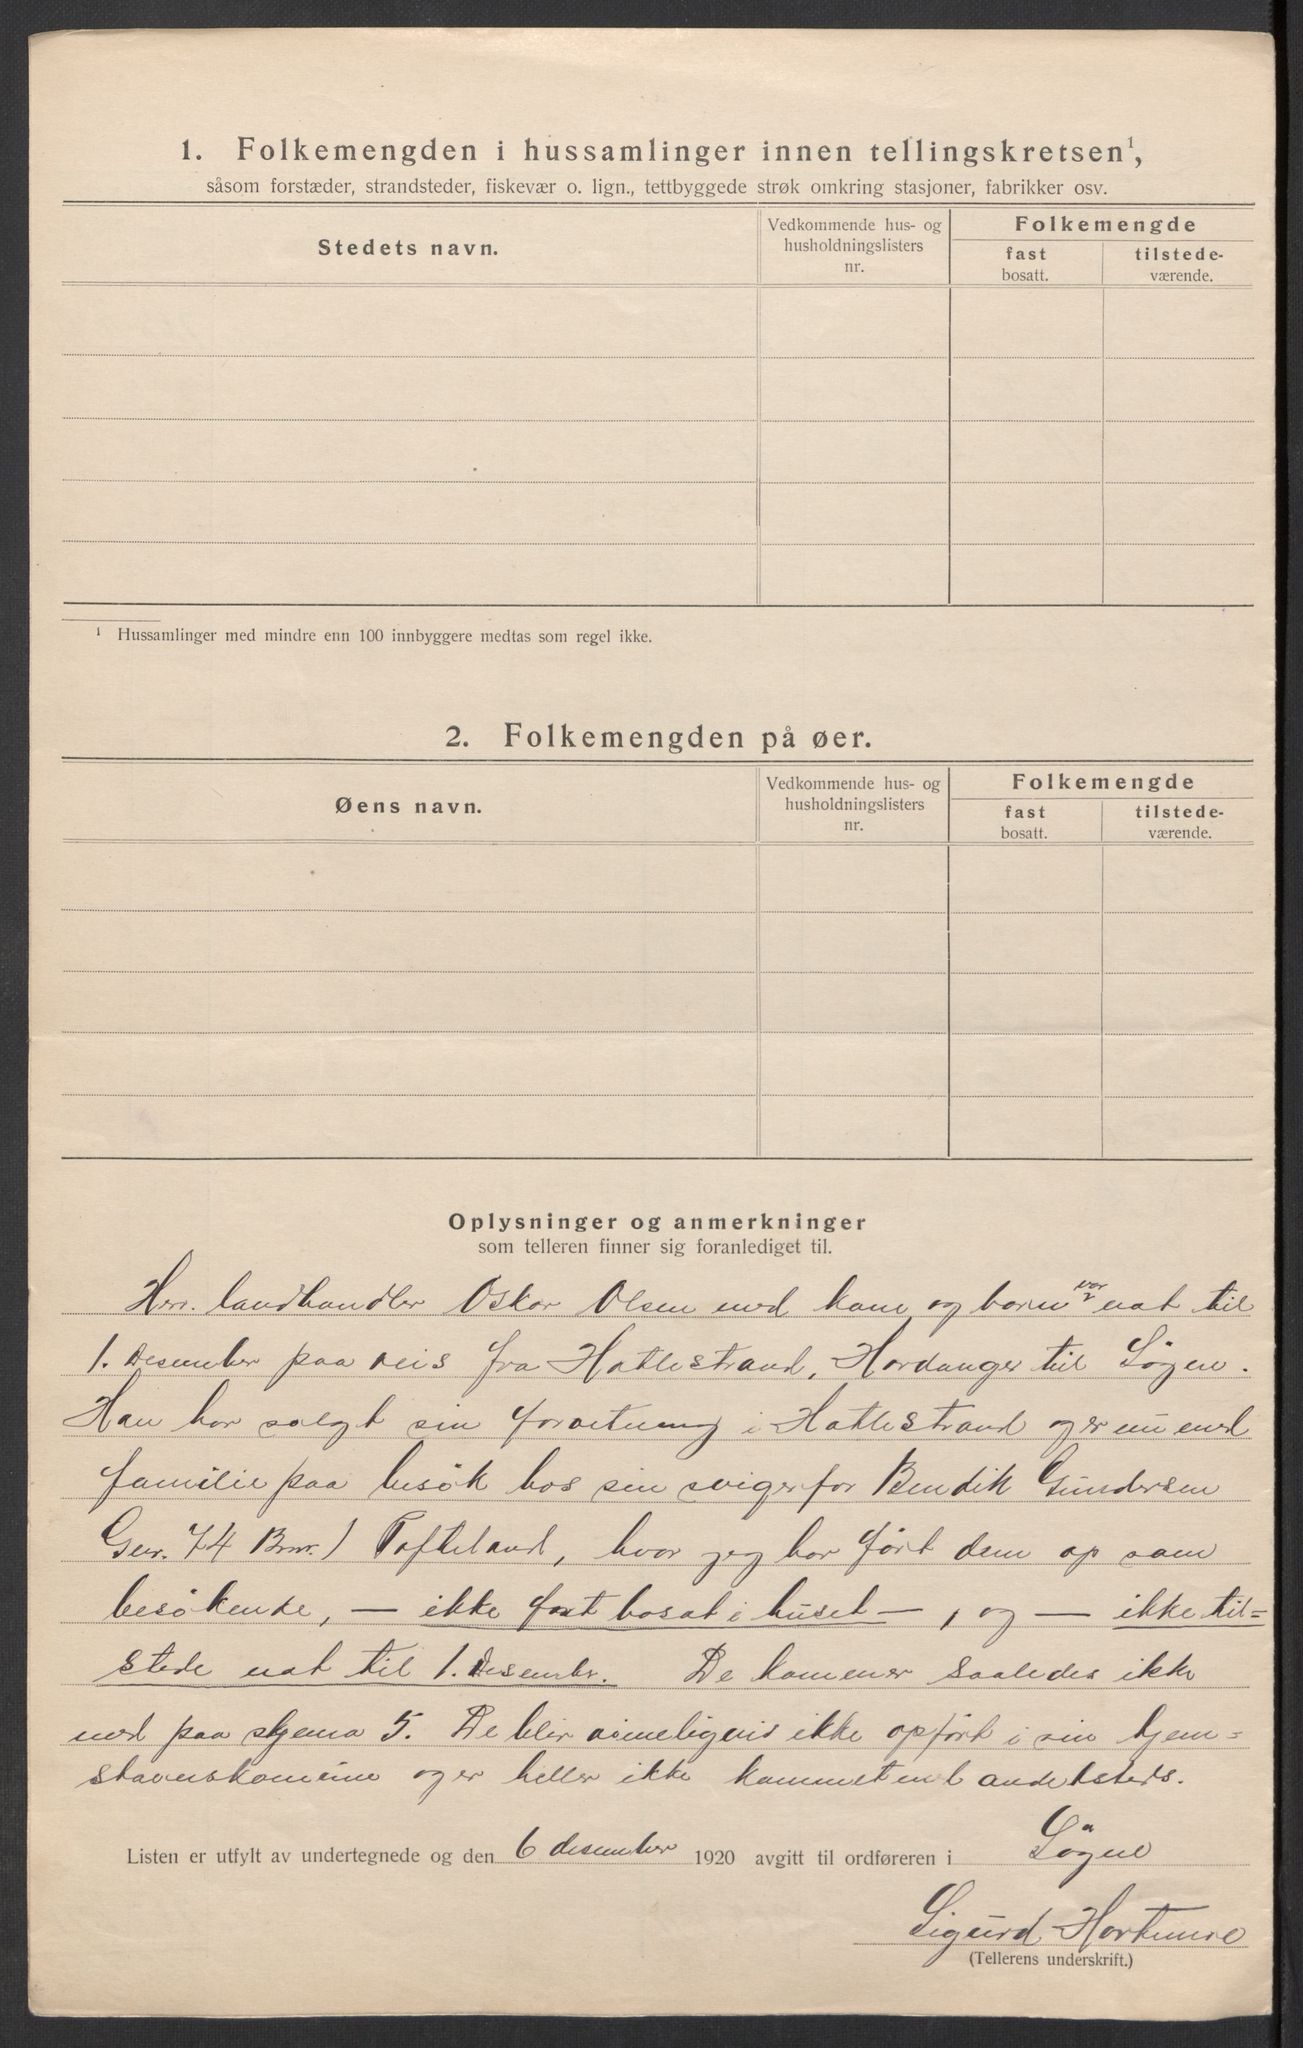 1. Folkemengden i hussamlinger innen tellingskretsen¹,
såsom forstæder, strandsteder, fiskevær o. lign., tettbyggede strøk omkring stasjoner, fabrikker osv.
Stedets navn.
Vedkommende hus- og
husholdningslisters
nr.
Folkemengde
fast
bosatt.
tilstede-
værende.
¹ Hussamlinger med mindre enn 100 innbyggere medtas som regel ikke.
2. Folkemengden på øer.
Øens navn.
Vedkommende hus- og
husholdningslisters
nr.
Folkemengde
fast
bosatt.
tilstede-
værende.
Oplysninger og anmerkninger
som telleren finner sig foranlediget til.
Herr. landhandler Oskar Olsen med kone og barn var nat til
1. desember paa reis fra Hatlestrand, Hardanger til Søgne.
Han har solgt sin forretning i Hatlestrand og er nu med
familie paa besøk hos sin svigerfar Bendik Gundersen
Gnr. 74 Bnr. 1 Tofteland, hvor jeg har ført dem op som
besøkende, — ikke fast bosat i huset —, og — ikke til=
stede nat til 1. desembr. De kommer saaledes ikke
med paa skjema 5. De blir rimeligvis ikke opført i sin hjem=
stavnskomune og er heller ikke kommet med andetsteds.
Listen er utfylt av undertegnede og den 6 desember 1920 avgitt til ordføreren i Søgne
Sigurd Hortemoe
(Tellerens underskrift.)